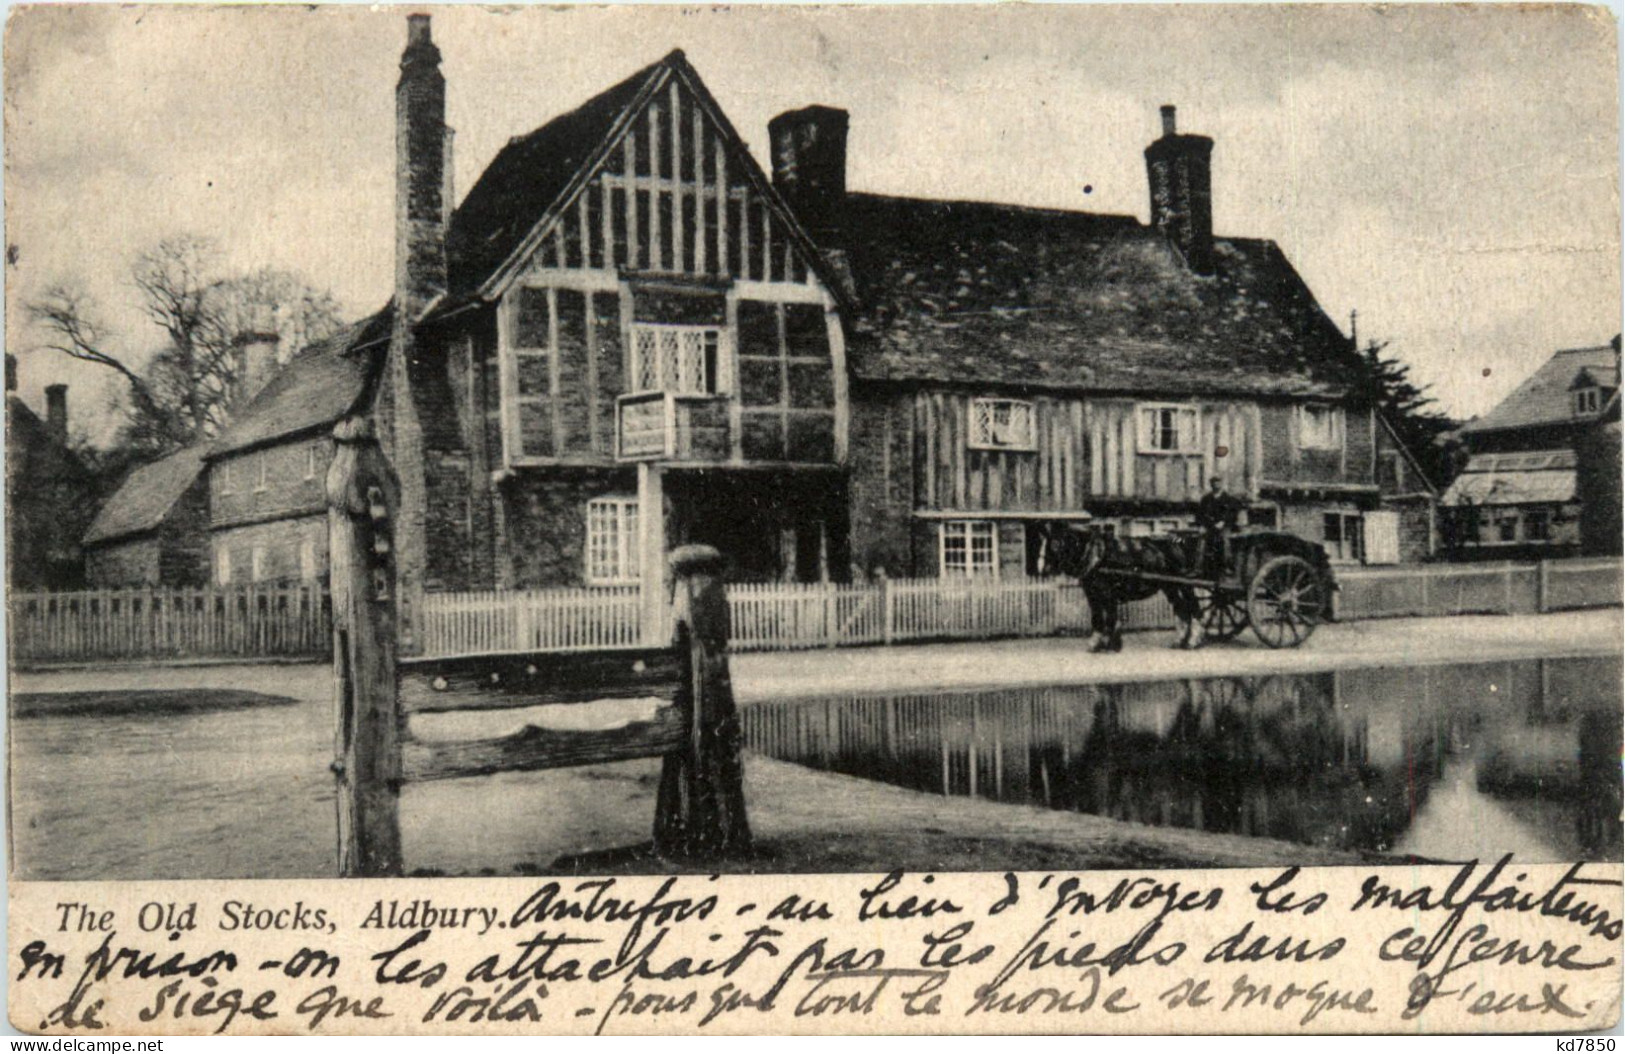 The Old Stocks, Aldbury. Autrefois - au lieu d'envoyer les malfaiteurs
en prison - on les attachait par les pieds dans ce genre
de siège que voilà - pour que tout le monde se moque d'eux.
www.delcampe.net
kd7850